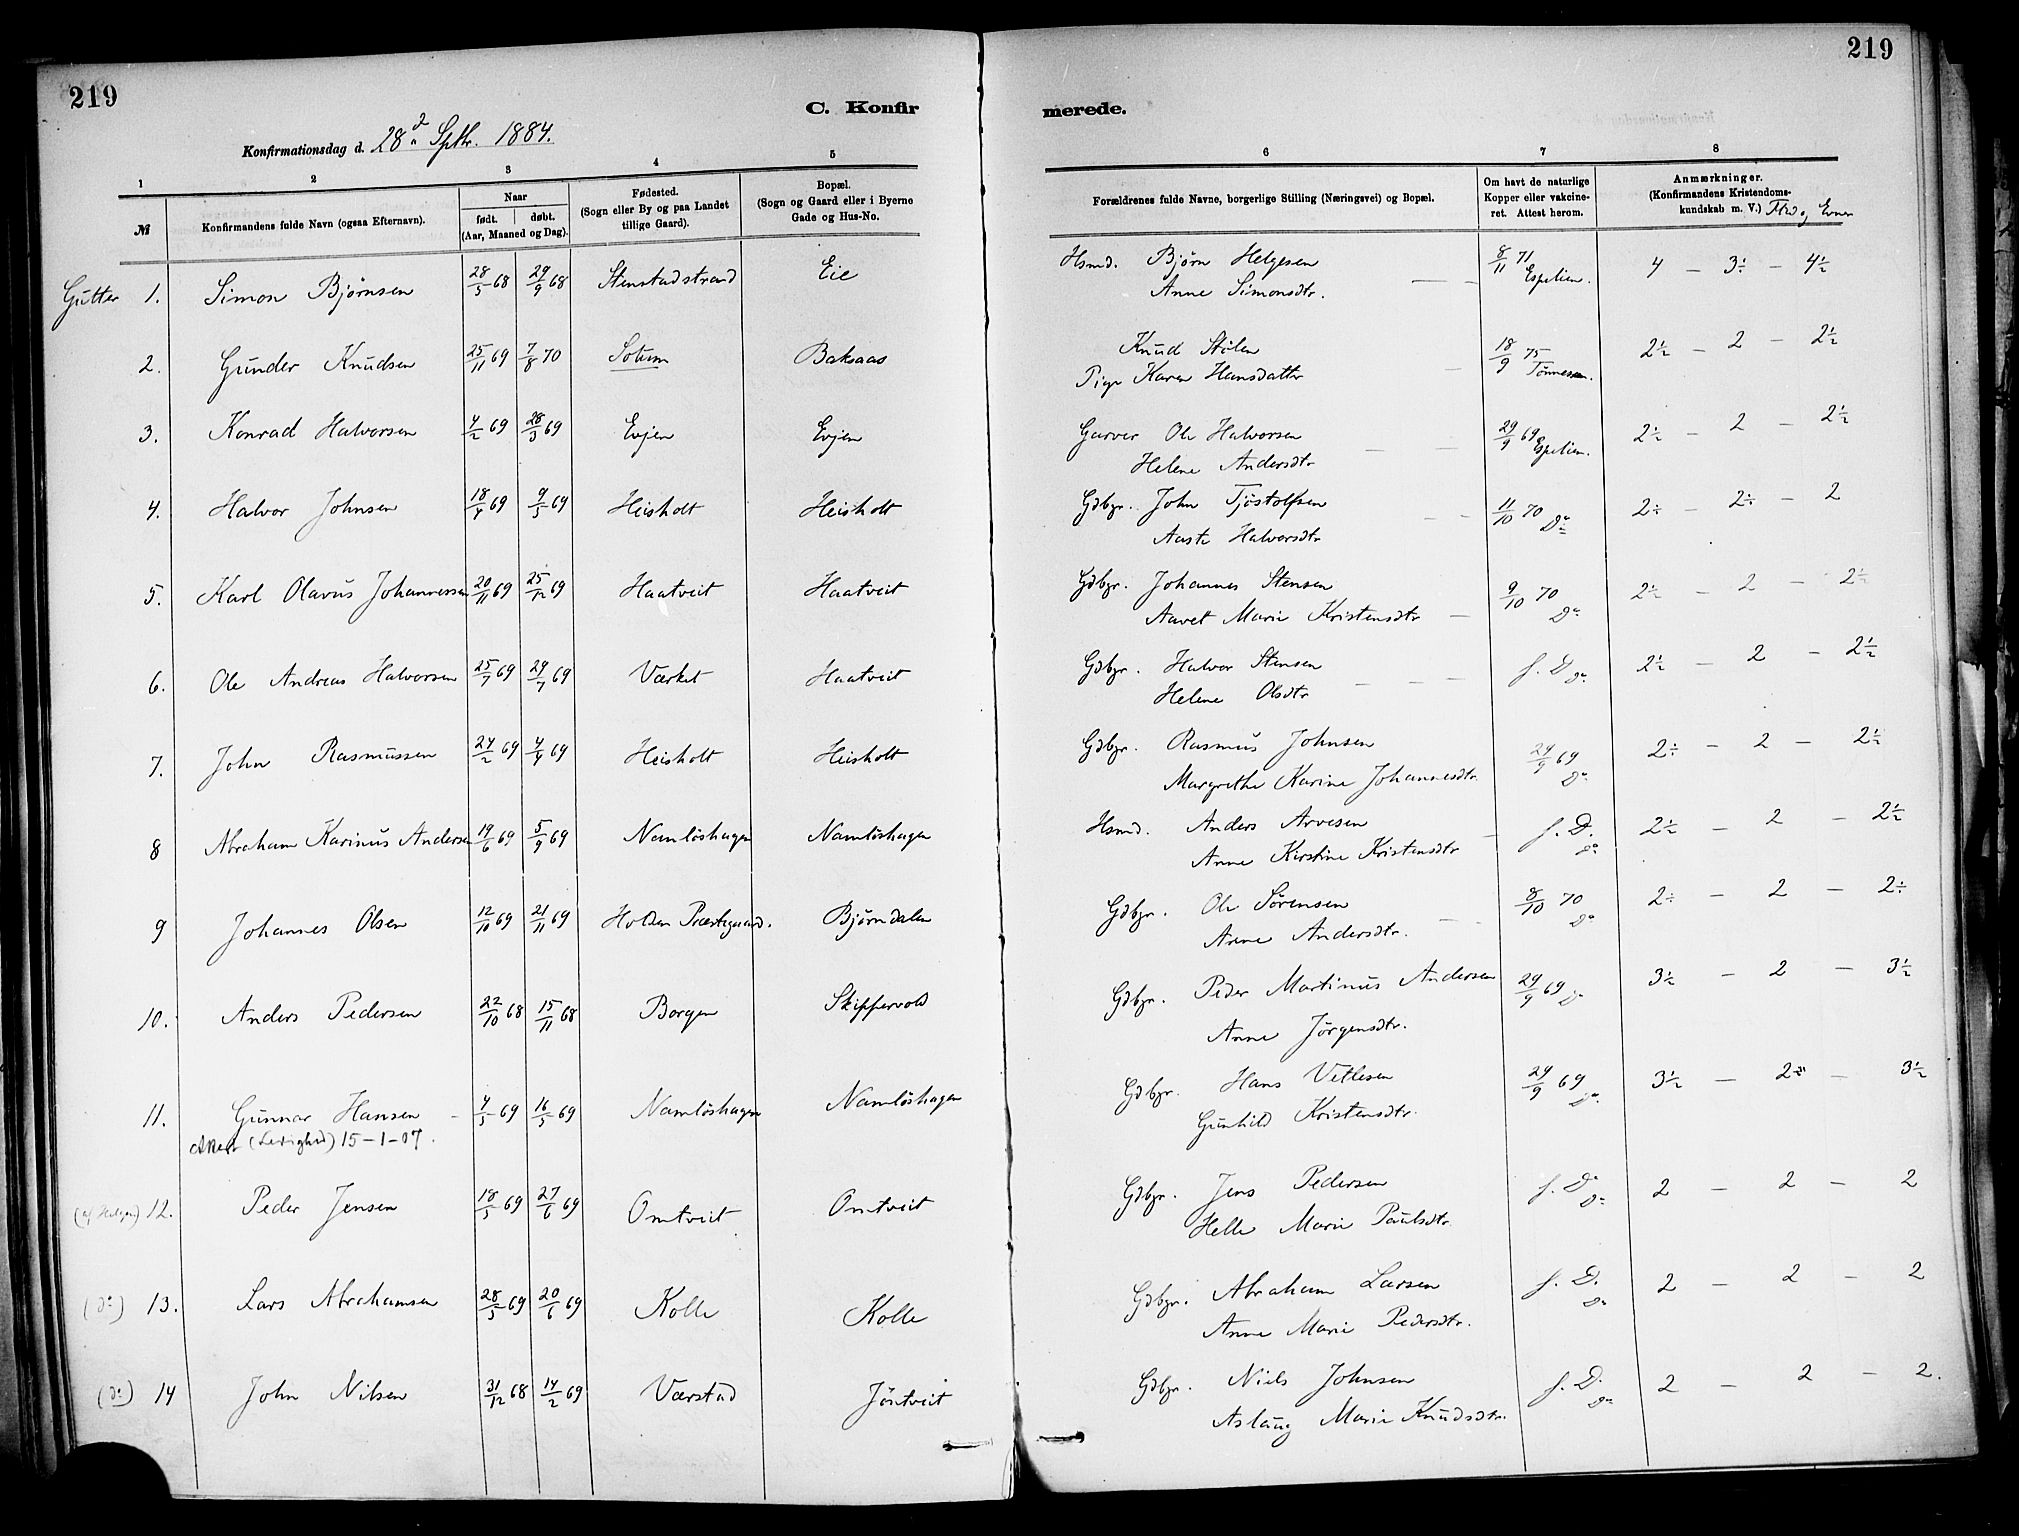 219
219
C. Konfirmerede.
Konfirmationsdag d. 28d Sptbr. 1884.
1 2 3 4 5 6 7 8
№
Konfirmandens fulde Navn (ogsaa Efternavn).
Naar
født. døbt.
(Aar, Maaned og Dag).
Fødested.
(Sogn eller By og paa Landet
tillige Gaard).
Bopæl.
(Sogn og Gaard eller i Byerne
Gade og Hus-No.
Forældrenes fulde Navne, borgerlige Stilling (Næringsvei) og Bopæl.
Om havt de naturlige
Kopper eller vakcine-
ret. Attest herom.
Anmærkninger.
(Konfirmandens Kristendoms-
kundskab m. V.) Flid og Evner
Gutter 1. Simon Bjørnsen 28/5 68 29/9 68 Stenstadstrand Eie Hsmd. Bjørn Helgesen 8/11 71 Espelien. 4 – 3÷ – 4½
Anne Simonsdtr.
2. Gunder Knudsen 25/11 69 7/8 70 Sotum Baksaas Knud Stølen 18/9 75 Tønnesen. 2½ – 2 – 2½
Pige Karen Hansdatter
3. Konrad Halvorsen 4/2 69 28/3 69 Evjen Evjen Garver Ole Halvorsen 29/9 69 Espelien. 2½ – 2 – 2½
Helene Andersdtr
4. Halvor Johnsen 18/4 69 9/5 69 Heisholt Heisholt Gdbgr. John Tjøstolfsen 11/10 70 Do 2÷ – 2÷ – 2
Aaste Halvorsdtr
5. Karl Olavus Johannessen 20/11 69 25/12 69 Haatveit Haatveit Gdbgr. Johannes Stensen 9/10 70 Do 2½ – 2 – 2½
Aavet Marie Kristensdtr
6. Ole Andreas Halvorsen 25/7 69 29/7 69 Værket Haatveit Gdbgr. Halvor Stensen f. D. Do 2½ – 2 – 2½
Helene Olsdtr
7. John Rasmussen 24/2 69 4/4 69 Heisholt Heisholt Gdbgr. Rasmus Johnsen 29/9 69 Do 2÷ – 2 – 2½
Margrethe Karine Johannesdtr.
8 Abraham Karinus Andersen 19/6 69 5/9 69 Namløshagen Namløshagen Hsmd. Anders Arvesen f. D. Do 2½ – 2 – 2½
Anne Kirstine Kristensdtr
9 Johannes Olsen 12/10 69 21/11 69 Holden Præstegaard. Bjørndalen Gdbgr. Ole Sørensen 8/10 70 Do 2÷ – 2 – 2÷
Anne Andersdtr.
10. Anders Pedersen 22/10 68 15/11 68 Borgen Skippervold Gdbgr. Peder Martinus Andersen 29/9 69 Do 3½ – 2 – 3½
Anne Jørgensdtr.
11. Gunnar Hansen 4/5 69 16/5 69 Namløshagen Namløshagen Gdbgr. Hans Vetlesen 29/9 69 Do 3½ – 2 – 3½
Attest (Ledighed) 15-1-07. Gunhild Kristensdtr.
12. Peder Jensen 18/5 69 27/6 69 Omtveit Omtveit Gdbgr. Jens Pedersen f. D. Do 2 – 2 – 2
Helle Marie Paulsdtr.
(do) 13. Lars Abrahamsen 28/5 69 20/6 69 Kolle Kolle Gdbgr. Abraham Larsen f. D. Do 2 – 2 – 2
Anne Marie Pedersdtr.
(do) 14 John Nilsen 31/12 68 14/2 69 Værstad Jøntveit Gdbgr. Niels Johnsen f. D. Do 2 – 2 – 2.
Aslaug Marie Knudsdtr.